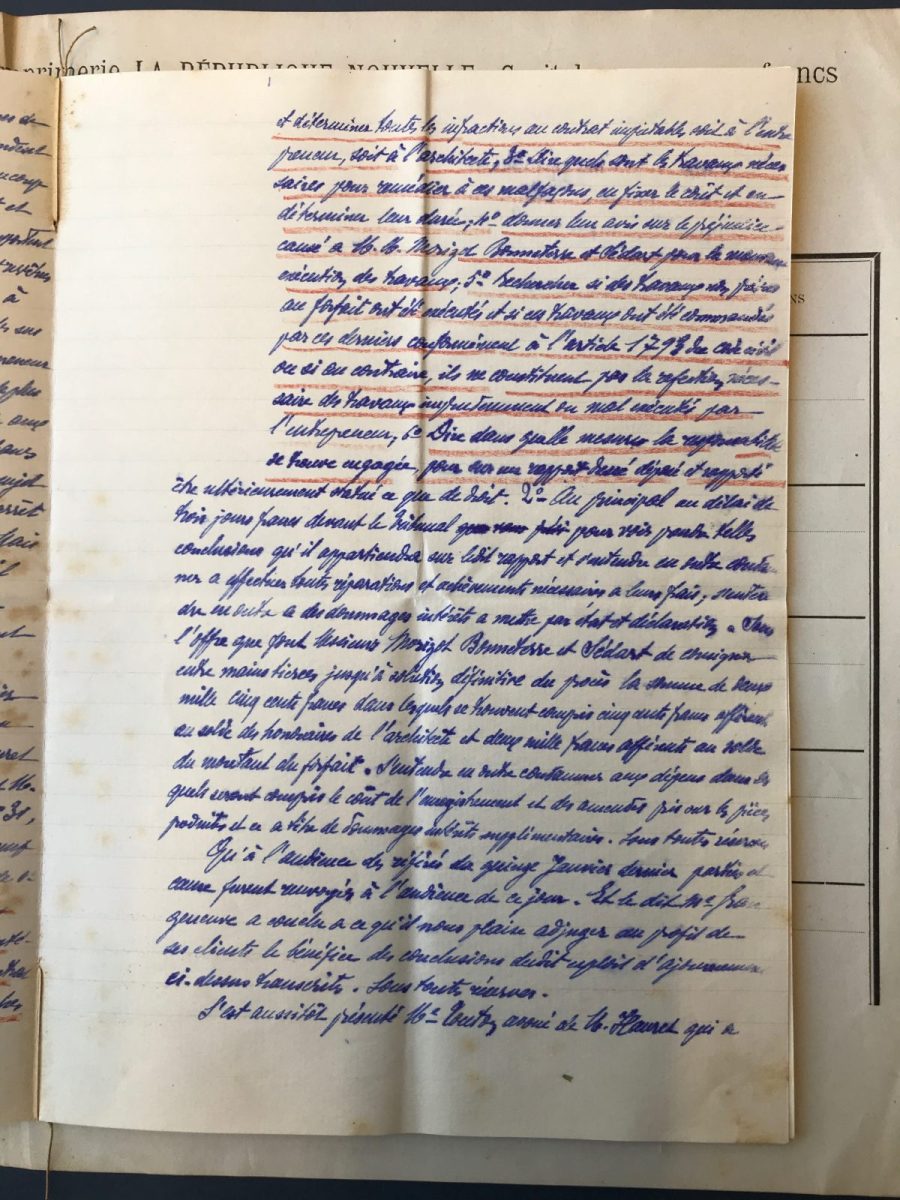 Imprimerie LA RÉPUBLIQUE NOUVELLE francs
et déterminer toutes les infractions au contrat imputables soit à l'entre
preneur, soit à l'architecte, 3° Dire quels sont les travaux néces
saires pour remédier à ces malfaçons, en fixer le coût et en
déterminer leur durée; 4° donner leur avis sur le préjudice
causé a M. M. Morizot Bonneterre et Sédart pour la mauvaise
exécution des travaux; 5° Rechercher si des travaux non prévus
au forfait ont été exécutés et si ces travaux ont été commandés
par ces derniers conformément à l'article 1793 du code civil
ou si au contraire, ils ne constituent pas la réfection néces-
saire des travaux imprudemment ou mal exécutés par
l'entrepreneur, 6° Dire dans quelle mesure la responsabilité
se trouve engagée, pour sur un rapport dressé déposé et rapporté
être ultérieurement statué ce que de droit. 2° Au principal au délai de
trois jours francs devant le Tribunal pour voir prendre telles
conclusions qu'il appartiendra sur ledit rapport et s'entendre en outre condam
ner a effectuer toutes réparations et achèvements nécessaires a leurs frais; s'enten
dre en outre a des dommages intérêts a mettre par état et déclaration. Sous
l'offre que font Messieurs Morizot Bonneterre et Sédart de consigner
entre mains tierces jusqu'à solution définitive du procès la somme de deux
mille cinq cents francs dans lesquels se trouvent compris cinq cents francs afférents
au solde des honoraires de l'architecte et deux mille francs afférents au solde
du montant du forfait. S'entendre en outre condamner aux dépens dans les
quels seront compris le coût de l'enregistrement et des amendes pris sur les pièces
produites et ce a titre de dommages intérêts supplémentaires. Sous toutes réserves
Qu'à l'audience des référés du quinze Janvier dernier parties et
cause furent renvoyées à l'audience de ce jour. Et le dit Me
a conclu a ce qu'il nous plaise adjuger au profit de
ses clients le bénéfice des conclusions dudit exploit d'ajournement
ci-dessus transcrites. Sous toutes réserves.
S'est aussitôt présenté Me avoué de M. Hauret qui a